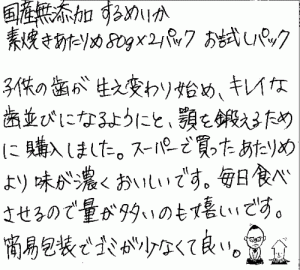 国産無添加 するめいか
素焼きあたりめ80g×2パック お試しパック
子供の歯が生え変わり始め、キレイな
歯並びになるようにと、顎を鍛えるため
に購入しました。スーパーで買ったあたりめ
より味が濃くおいしいです。毎日食べ
させるので量が多いのも嬉しいです。
簡易包装でゴミが少なくて良い。